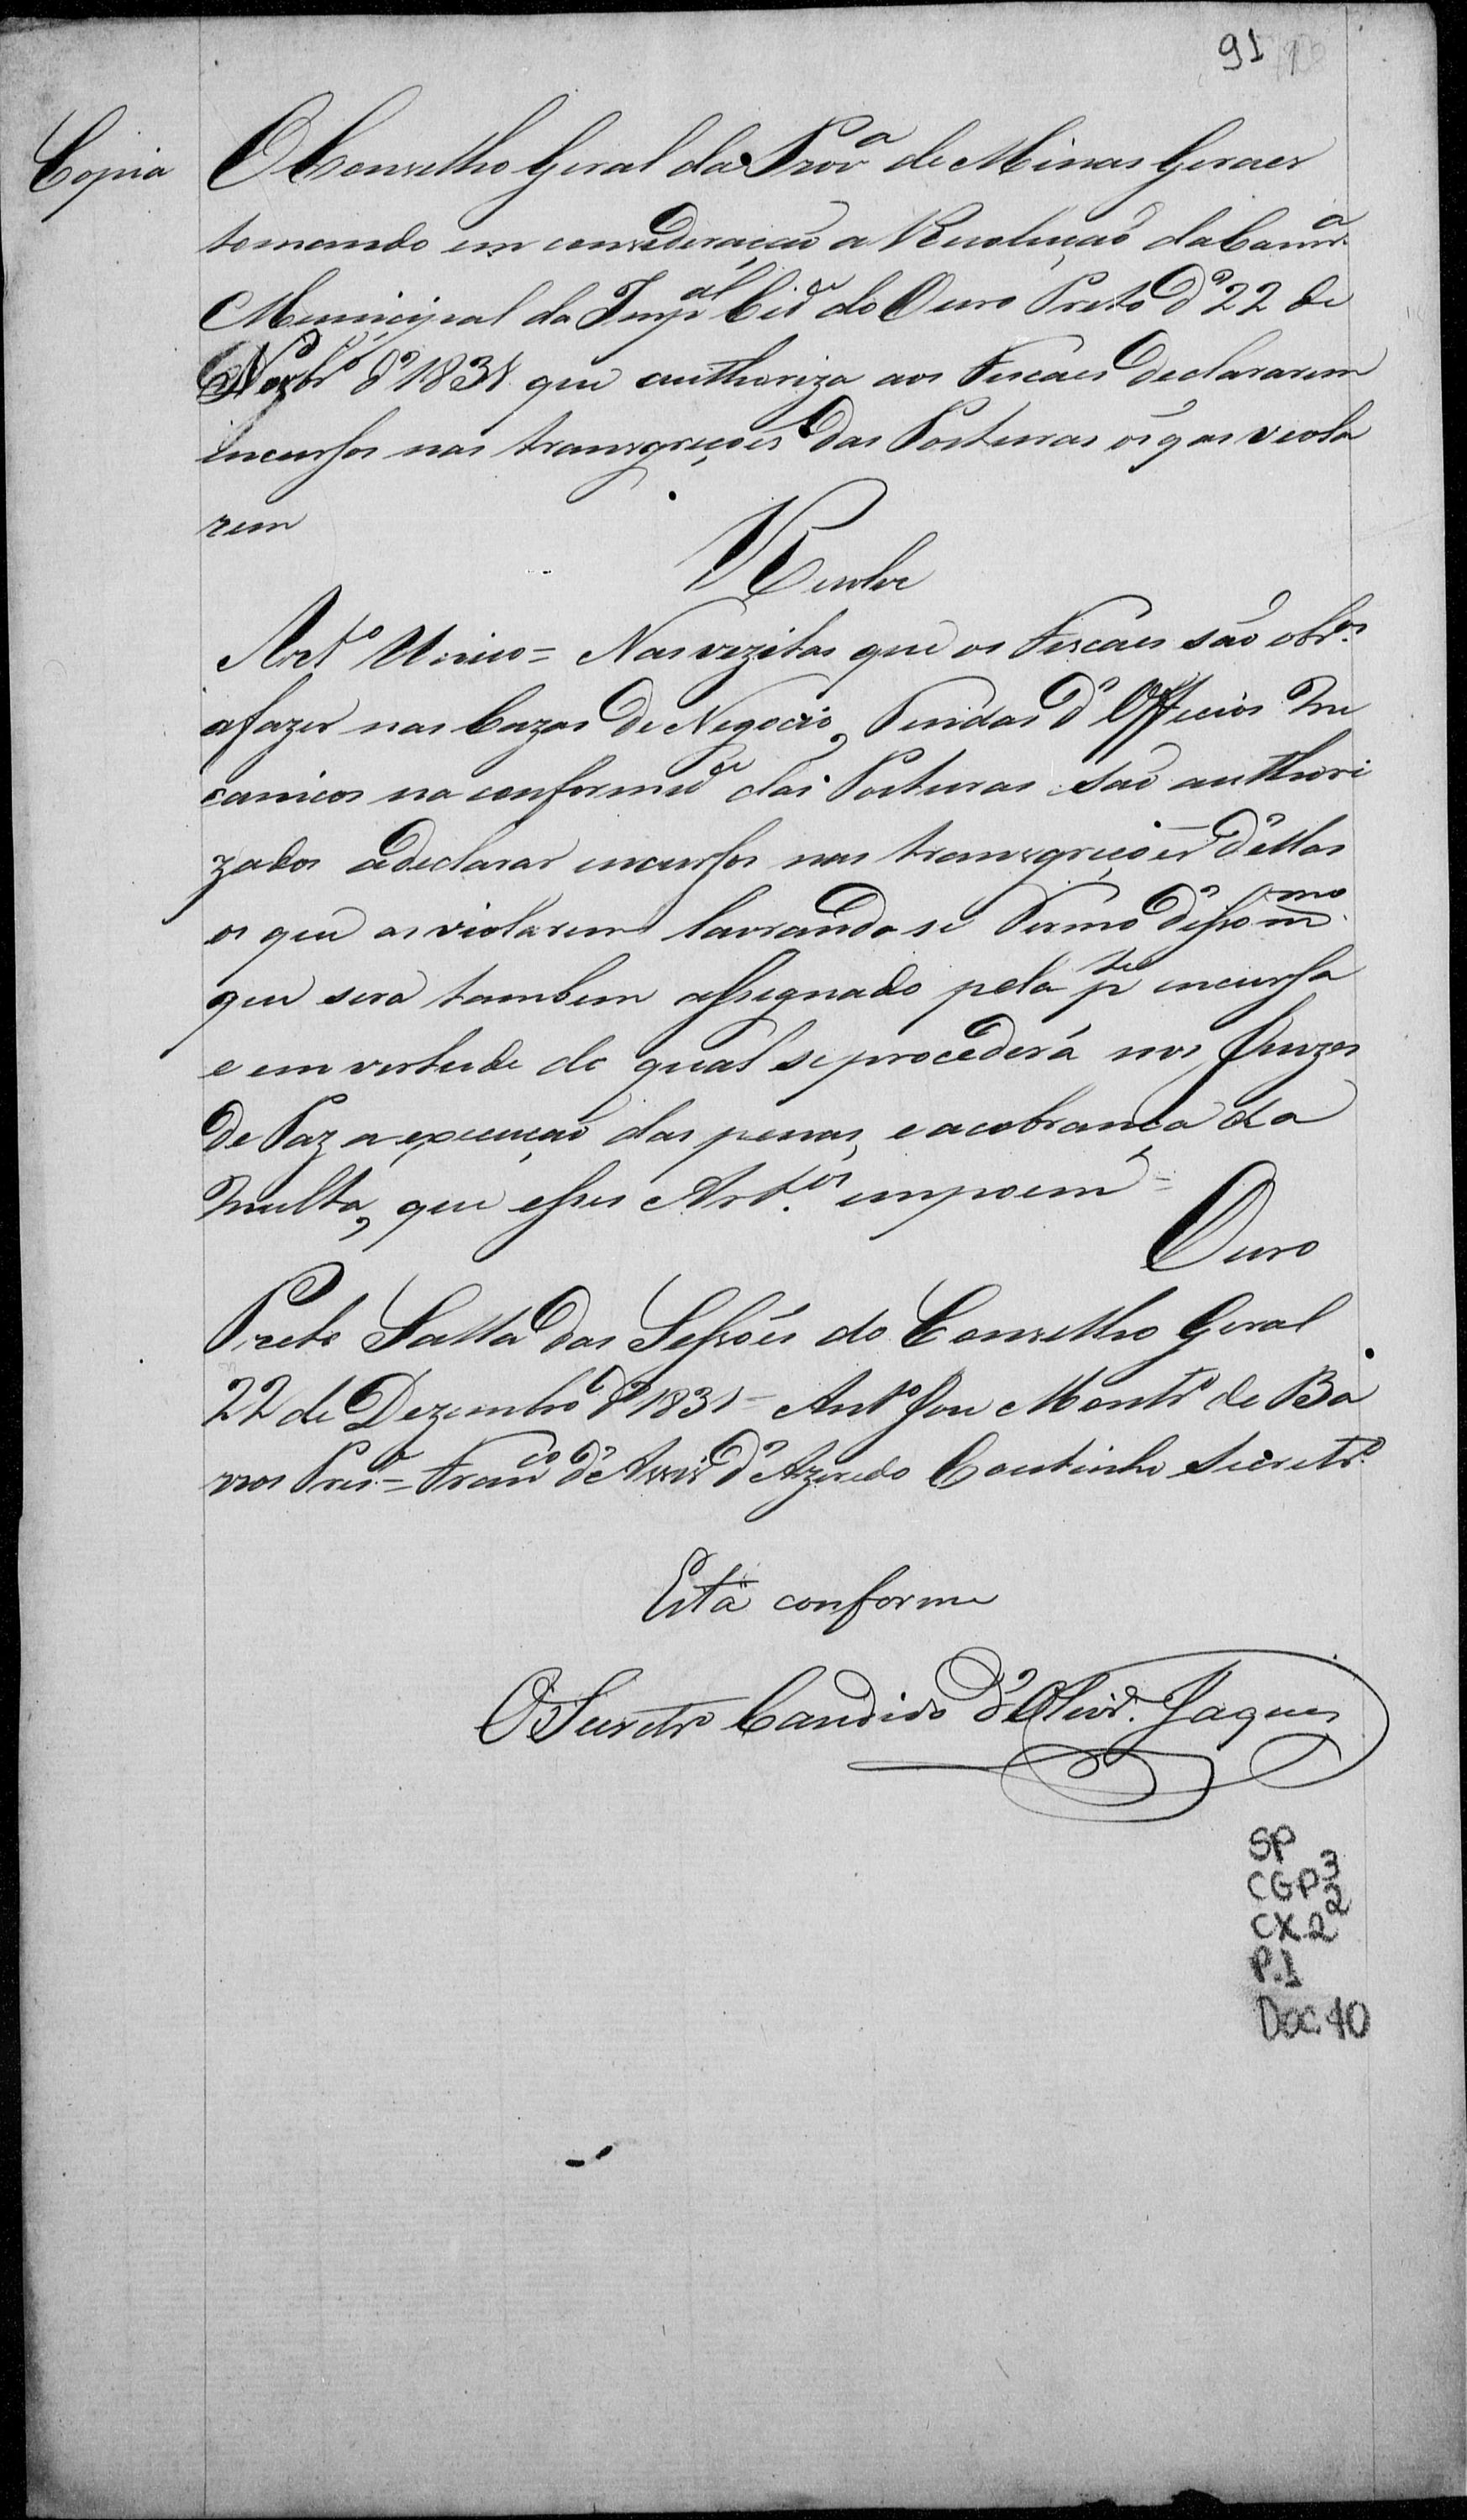 91
Copia
O Conselho Geral da Prov.a de Minas Geraes
tomando em consideração a Resolução da Camr.a
Municipal da Imp.al Cid.e do Ouro Preto d'22 de
Novbr.o d'1831 que authoriza aos Fiscaes declararem
incursos nas transgreções das Posturas os q as viola
rem
Resolve
Art.o Unico = Nas vezitas que os Fiscaes são obr.os
a fazer nas Cazas de Negocio, Tendas d'Officios Me
canicos na conformid.e das Posturas são authori
zados a declarar incursos nas transgreções d'ellas
os que as violarem lavrando se Termo d'isso m.mo
que sera tambem assignado pela p.te incursa
e em vertude do qual se procederá nos Juizos
de Paz a execução das penas, e a cobrança da
multa, que esses Art.os impoem =
Ouro
Preto Salla das Sessões do Conselho Geral
22 de Dezembro d'1831 = Ant.o Jose Montr.o de Ba
rros Pres.e = Fran.co d'Assis d'Azeredo Coutinho Secretr.o
Está conforme
O Secretr.o Candido d'Olivr.a Jaques
SP
CGP3
CX.22
P.1
Doc.40